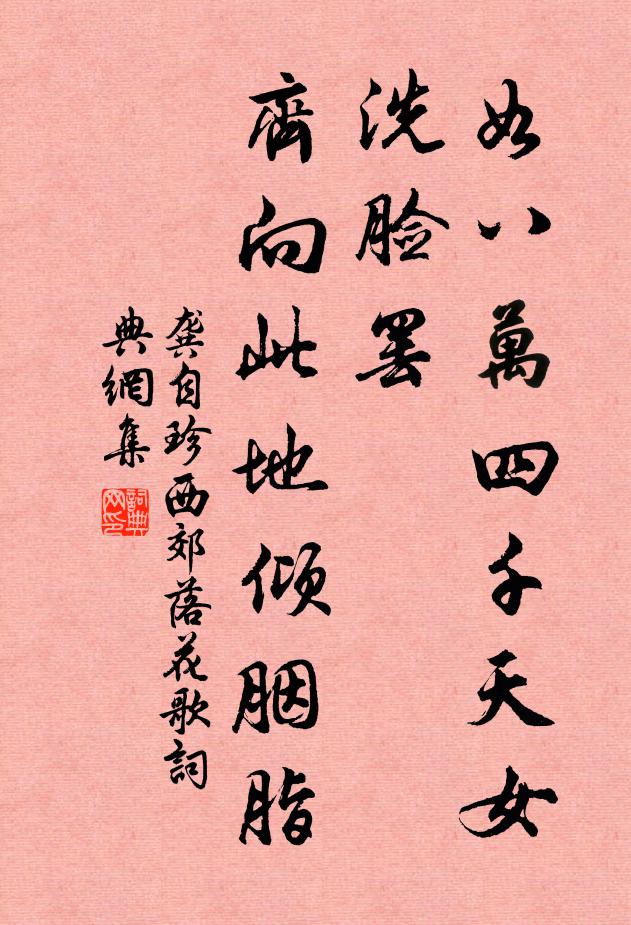 如八萬四千天女
洗脸罢
齊向此地倾胭脂
龚自珍西郊落花歌詞
典網集
詞典
网印